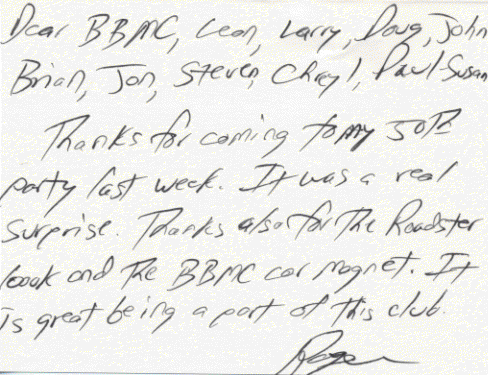 Dear BBMC, Leon, Larry, Doug, John
Brian, Jon, Steven, Cheryl, Paul Susan
Thanks for coming to my 50th
party last week. It was a real
surprise. Thanks also for the Roadster
book and the BBMC car magnet. It
is great being a part of this club.
Roger